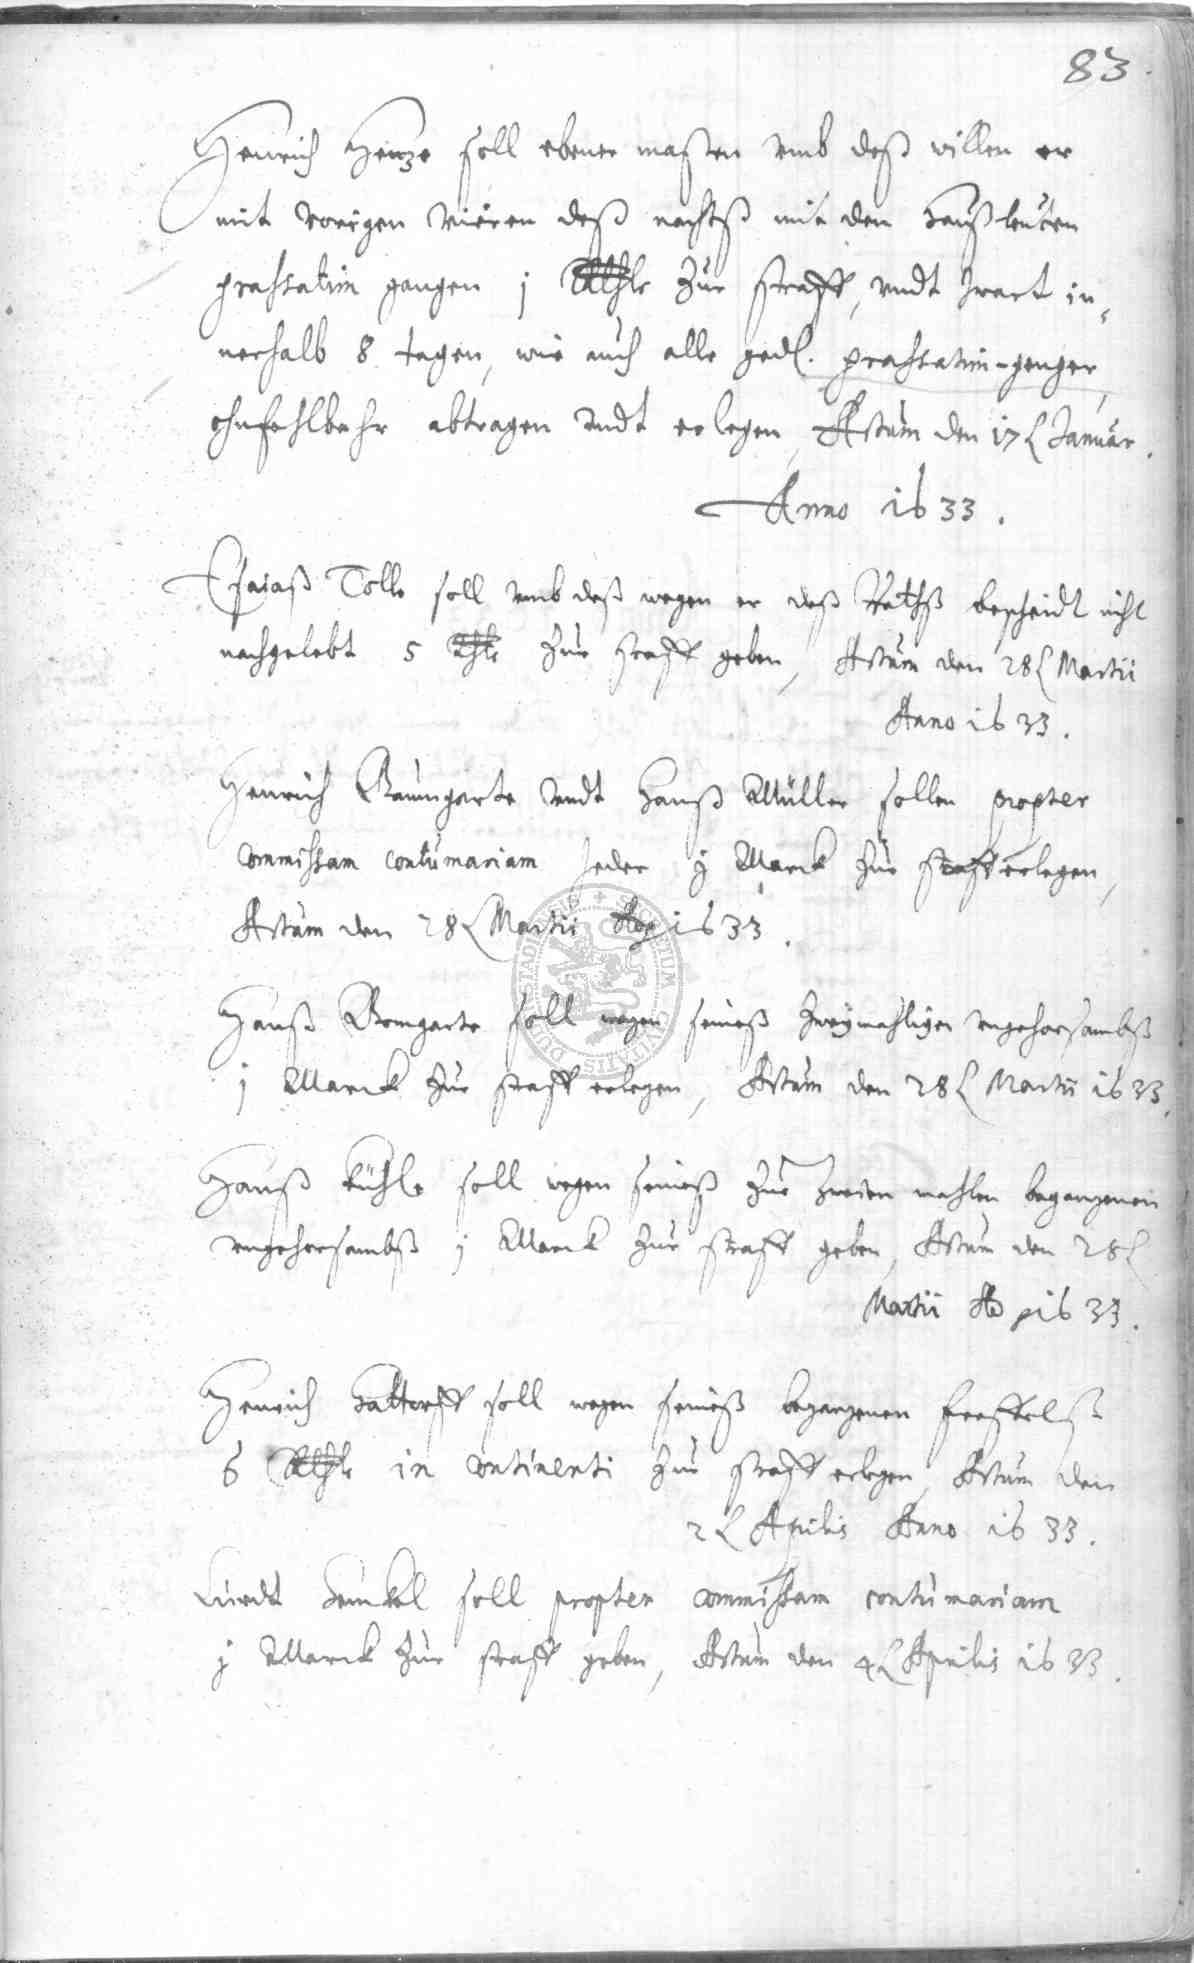 83.
Henrich Heinze soll ebener maßen umb deß willen er
mit vorigen vieren deß nachtß mit den Haußleuten
grassatim gangen j Rthlr zur straff, undt zwart in¬
nerhalb 8 tagen, wie auch alle ged. grassatim-genger,
ohnfehlbahr abtragen undt erlegen, Actum den 17t Januar.
Anno 1633.
Esaiaß Tolle soll umb deß wegen er deß Rathß bescheidt nicht
nachgelebt 5 thlr zur straff geben, Actum den 28t Martii
Anno 1633.
Henrich Baumgarte undt Hanß Müller sollen propter
commissam contumaciam Jeder j Marck zur straff erlegen,
Actum den 28t Martii Ao 1633.
Hanß Bomgarte soll wegen seineß zweymahligen ungehorsambß
j Marck zur straff erlegen, Actum den 28t Martii 1633.
Hanß Kühle soll wegen seineß zur zweiten mahlen begangenen
ungehorsambß j Marck zur straff geben, Actum den 28t
Martii Ao 1633.
Henrich Hattorff soll wegen seineß begangenen freffelß
6 Rthlr in continenti zur straff erlegen, Actum den
2t Aprilis Anno 1633.
Curdt Kunckel soll propter commissam contumaciam
j Marck zur straff geben, Actum den 4t Aprilis 1633.
SECRETUM CIVITATIS DUDERSTADENSIS